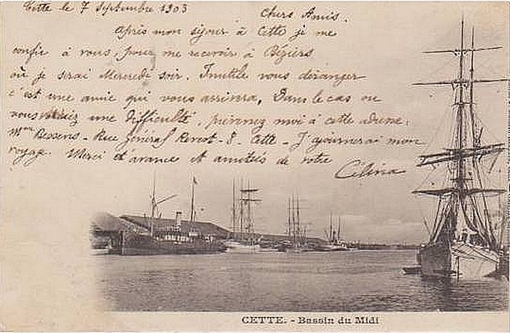 Cette le 7 Septembre 1903
Chers Amis.
Après mon séjour à Cette je me
confie à vous, pour me recevoir à Béziers
où je serai Mercredi soir. Inutile vous déranger
c'est une amie qui vous arrivera, Dans le cas ou
vous une difficulté, prévenez moi à cette adresse:
Mme Bessens - Rue Général 8. Cette - J'ajournerai mon
voyage. Merci et d'avance et amitiés de votre
Célina
CETTE. - Bassin du Midi